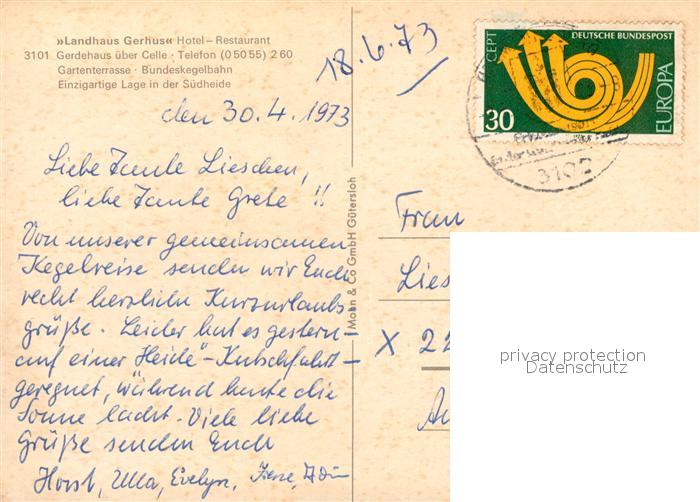 »Landhaus Gerhus« Hotel–Restaurant
3101 Gerdehaus über Celle · Telefon (0 50 55) 2 60
Gartenterrasse · Bundeskegelbahn
Einzigartige Lage in der Südheide
18.6.73
DEUTSCHE BUNDESPOST
CEPT
EUROPA
30
3102
den 30.4.1973
Liebe Tante Lieschen,
liebe Tante Grete!!
Von unserer gemeinsamen
Kegelreise senden wir Euch
recht herzliche Kurzurlaubs-
grüße. Leider hat es gestern
auf einer Heide-Kutschfahrt
geregnet, während heute die
Sonne lacht. Viele liebe
Grüße senden Euch
Horst, Ulla, Evelyn,
Mohn & Co GmbH Gütersloh
Frau
Lies
X 22
privacy protection
Datenschutz